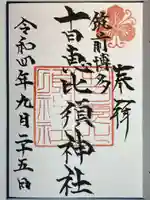 奉拝
筑前博多
十日恵比須神社
令和四年九月二十五日